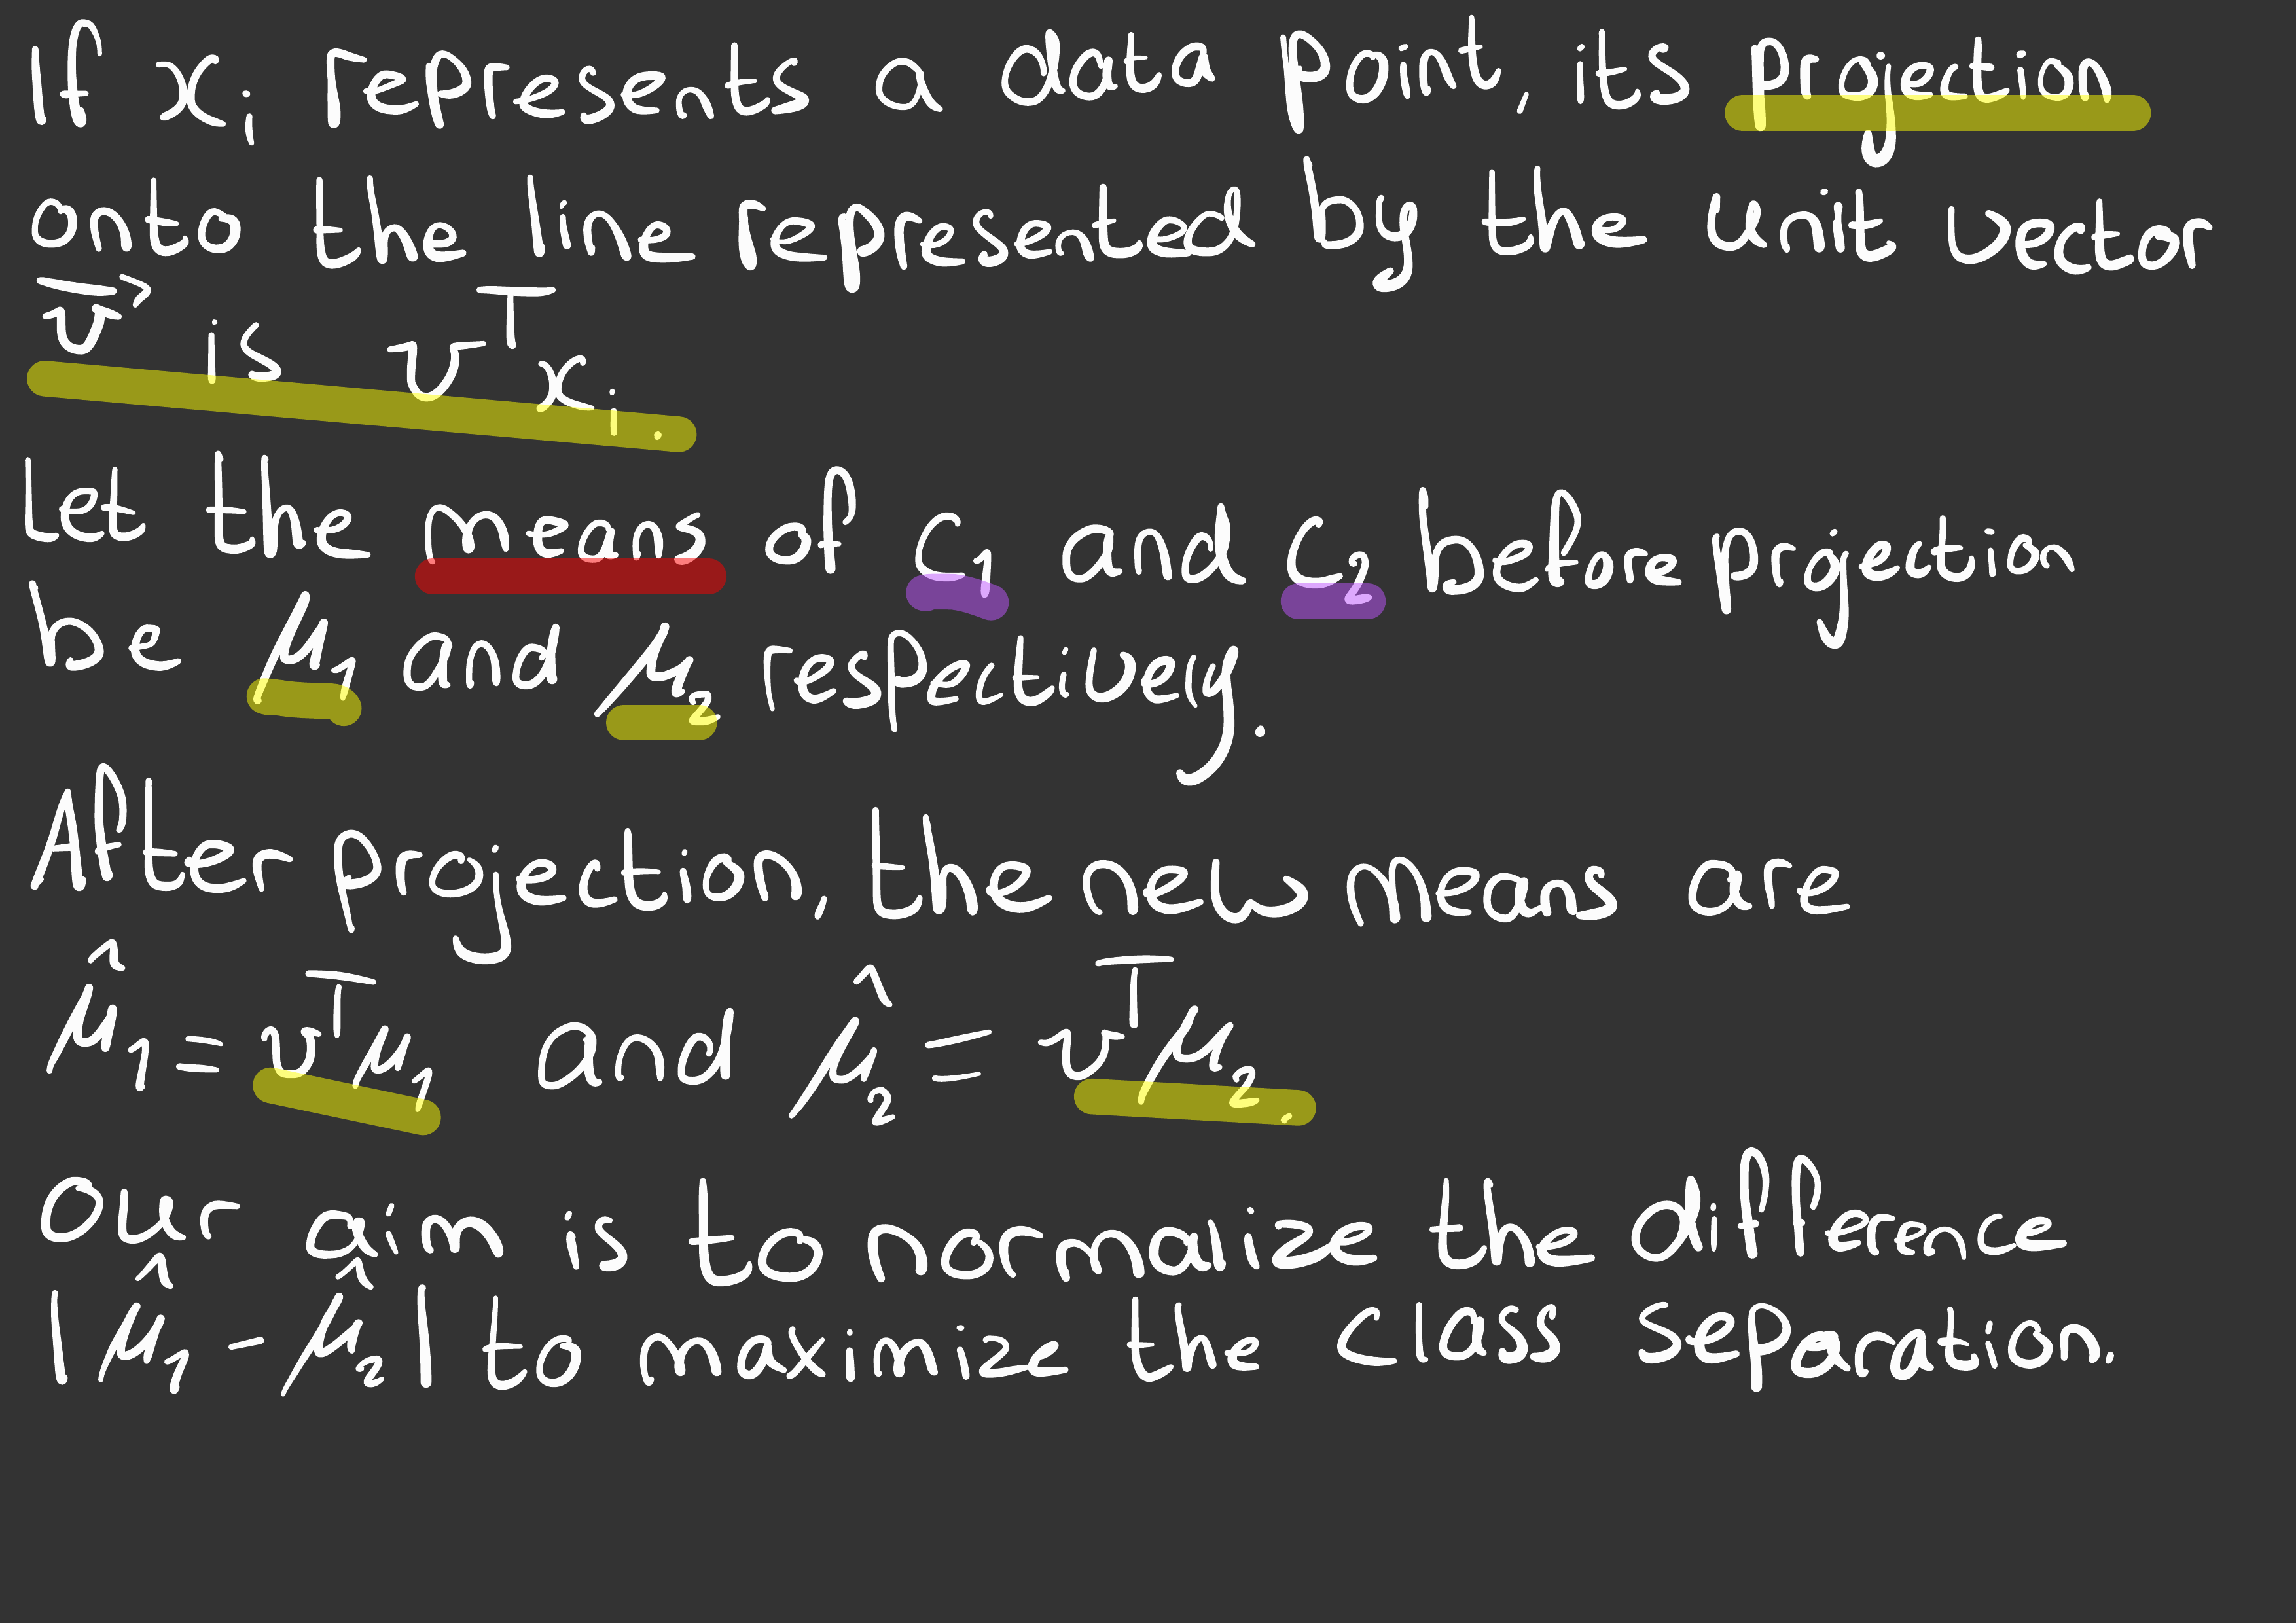 If xᵢ represents a data point, its projection
onto the line represented by the unit vector
v⃗ is vᵀxᵢ.
Let the means of c₁ and c₂ before projection
be μ₁ and μ₂ respectivey.
After projection, the new means are
μ̂₁ = vᵀμ₁ and μ̂₂ = vᵀμ₂.
Our aim is to normalize the difference
|μ̂₁ - μ̂₂| to maximize the class separation.